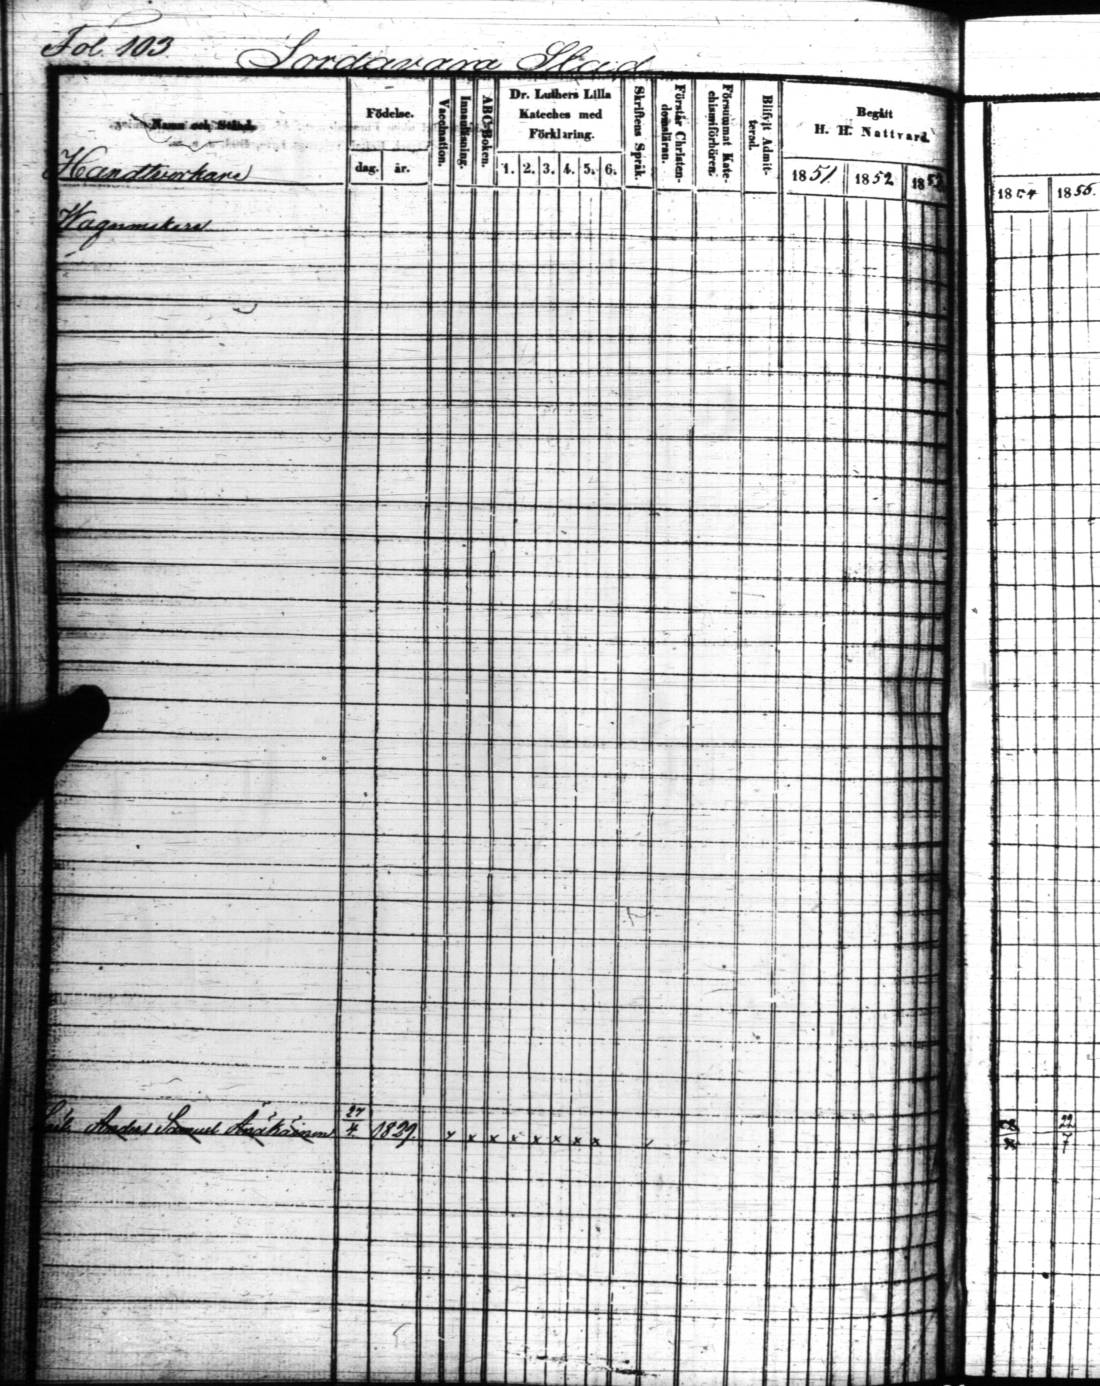 Fol. 103.
Sordavara Stad
Namn och Stånd.
Födelse.
dag.
år.
Vaccination.
Innanläsning.
ABC-Boken.
Dr. Luthers Lilla
Kateches med
Förklaring.
1. 2. 3. 4. 5. 6.
Skriftens Språk.
Förstår Christen-
domsläran.
Försummat Kate-
chismiförhören.
Blifvit Admit-
terad.
Begått
H. H. Nattvard.
1851. 1852 1853
1854 1855.
Handtverkare
Wagnmakare
Anders Samuel 27/4 1829. x x x x x x x x